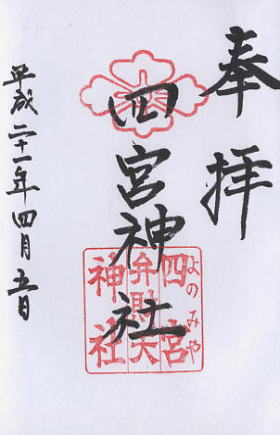 奉拝
四宮神社
四宮
よのみや
弁財天
神社
平成二十一年四月五日